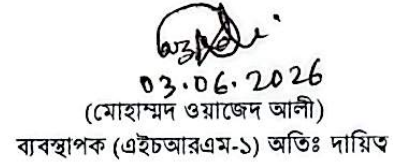 03.06.2026
(মোহাম্মদ ওয়াজেদ আলী)
ব্যবস্থাপক (এইচআরএম-১) অতিঃ দায়িত্ব